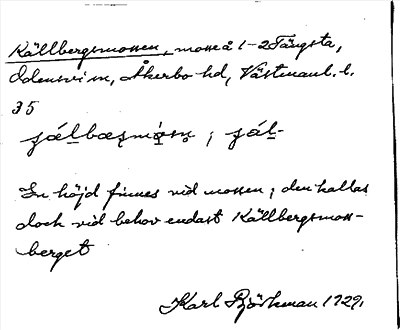 Källbergsmossen, mosse å 1-2 Tängsta,
Odensvi sn, Åkerbo hd, Västmanl. l.
35
; 
En höjd finnes vid mossen; den kallas
dock vid behov endast Källbergsmoss-
berget
Karl Björkman 1929.